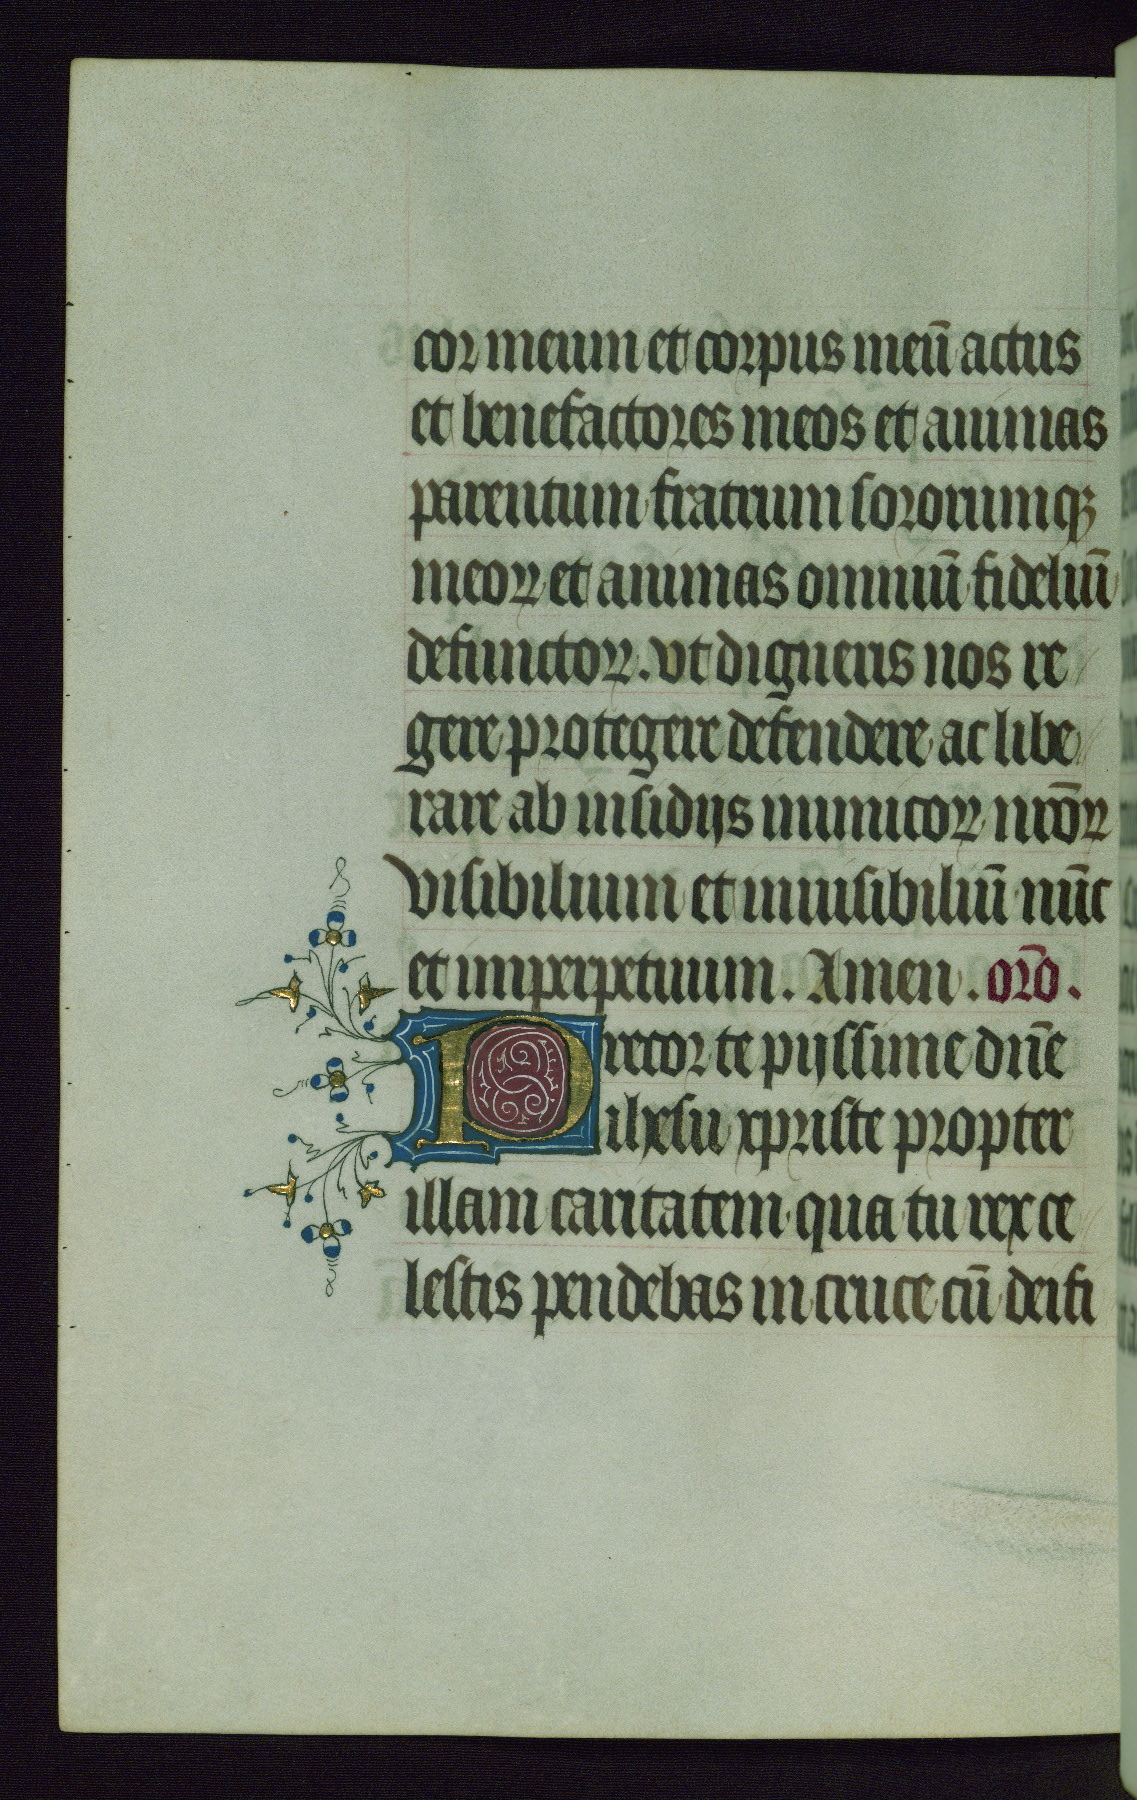 cor meum et corpus meū actus
et benefactores meos et animas
parentum fratrum sororumqꝫ
meoꝝ et animas omniū fideliū
defunctoꝝ. vt digneris nos re
gere protegere defendere ac libe
rare ab insidijs inimicoꝝ nr̄oꝝ
visibilium et inuisibiliū nūc
et imperpetuum. Amen. or̄o.
Precor te pijssime dn̄e
ihesu xpriste propter
illam caritatem qua tu rex ce
lestis pendebas in cruce cū deifi